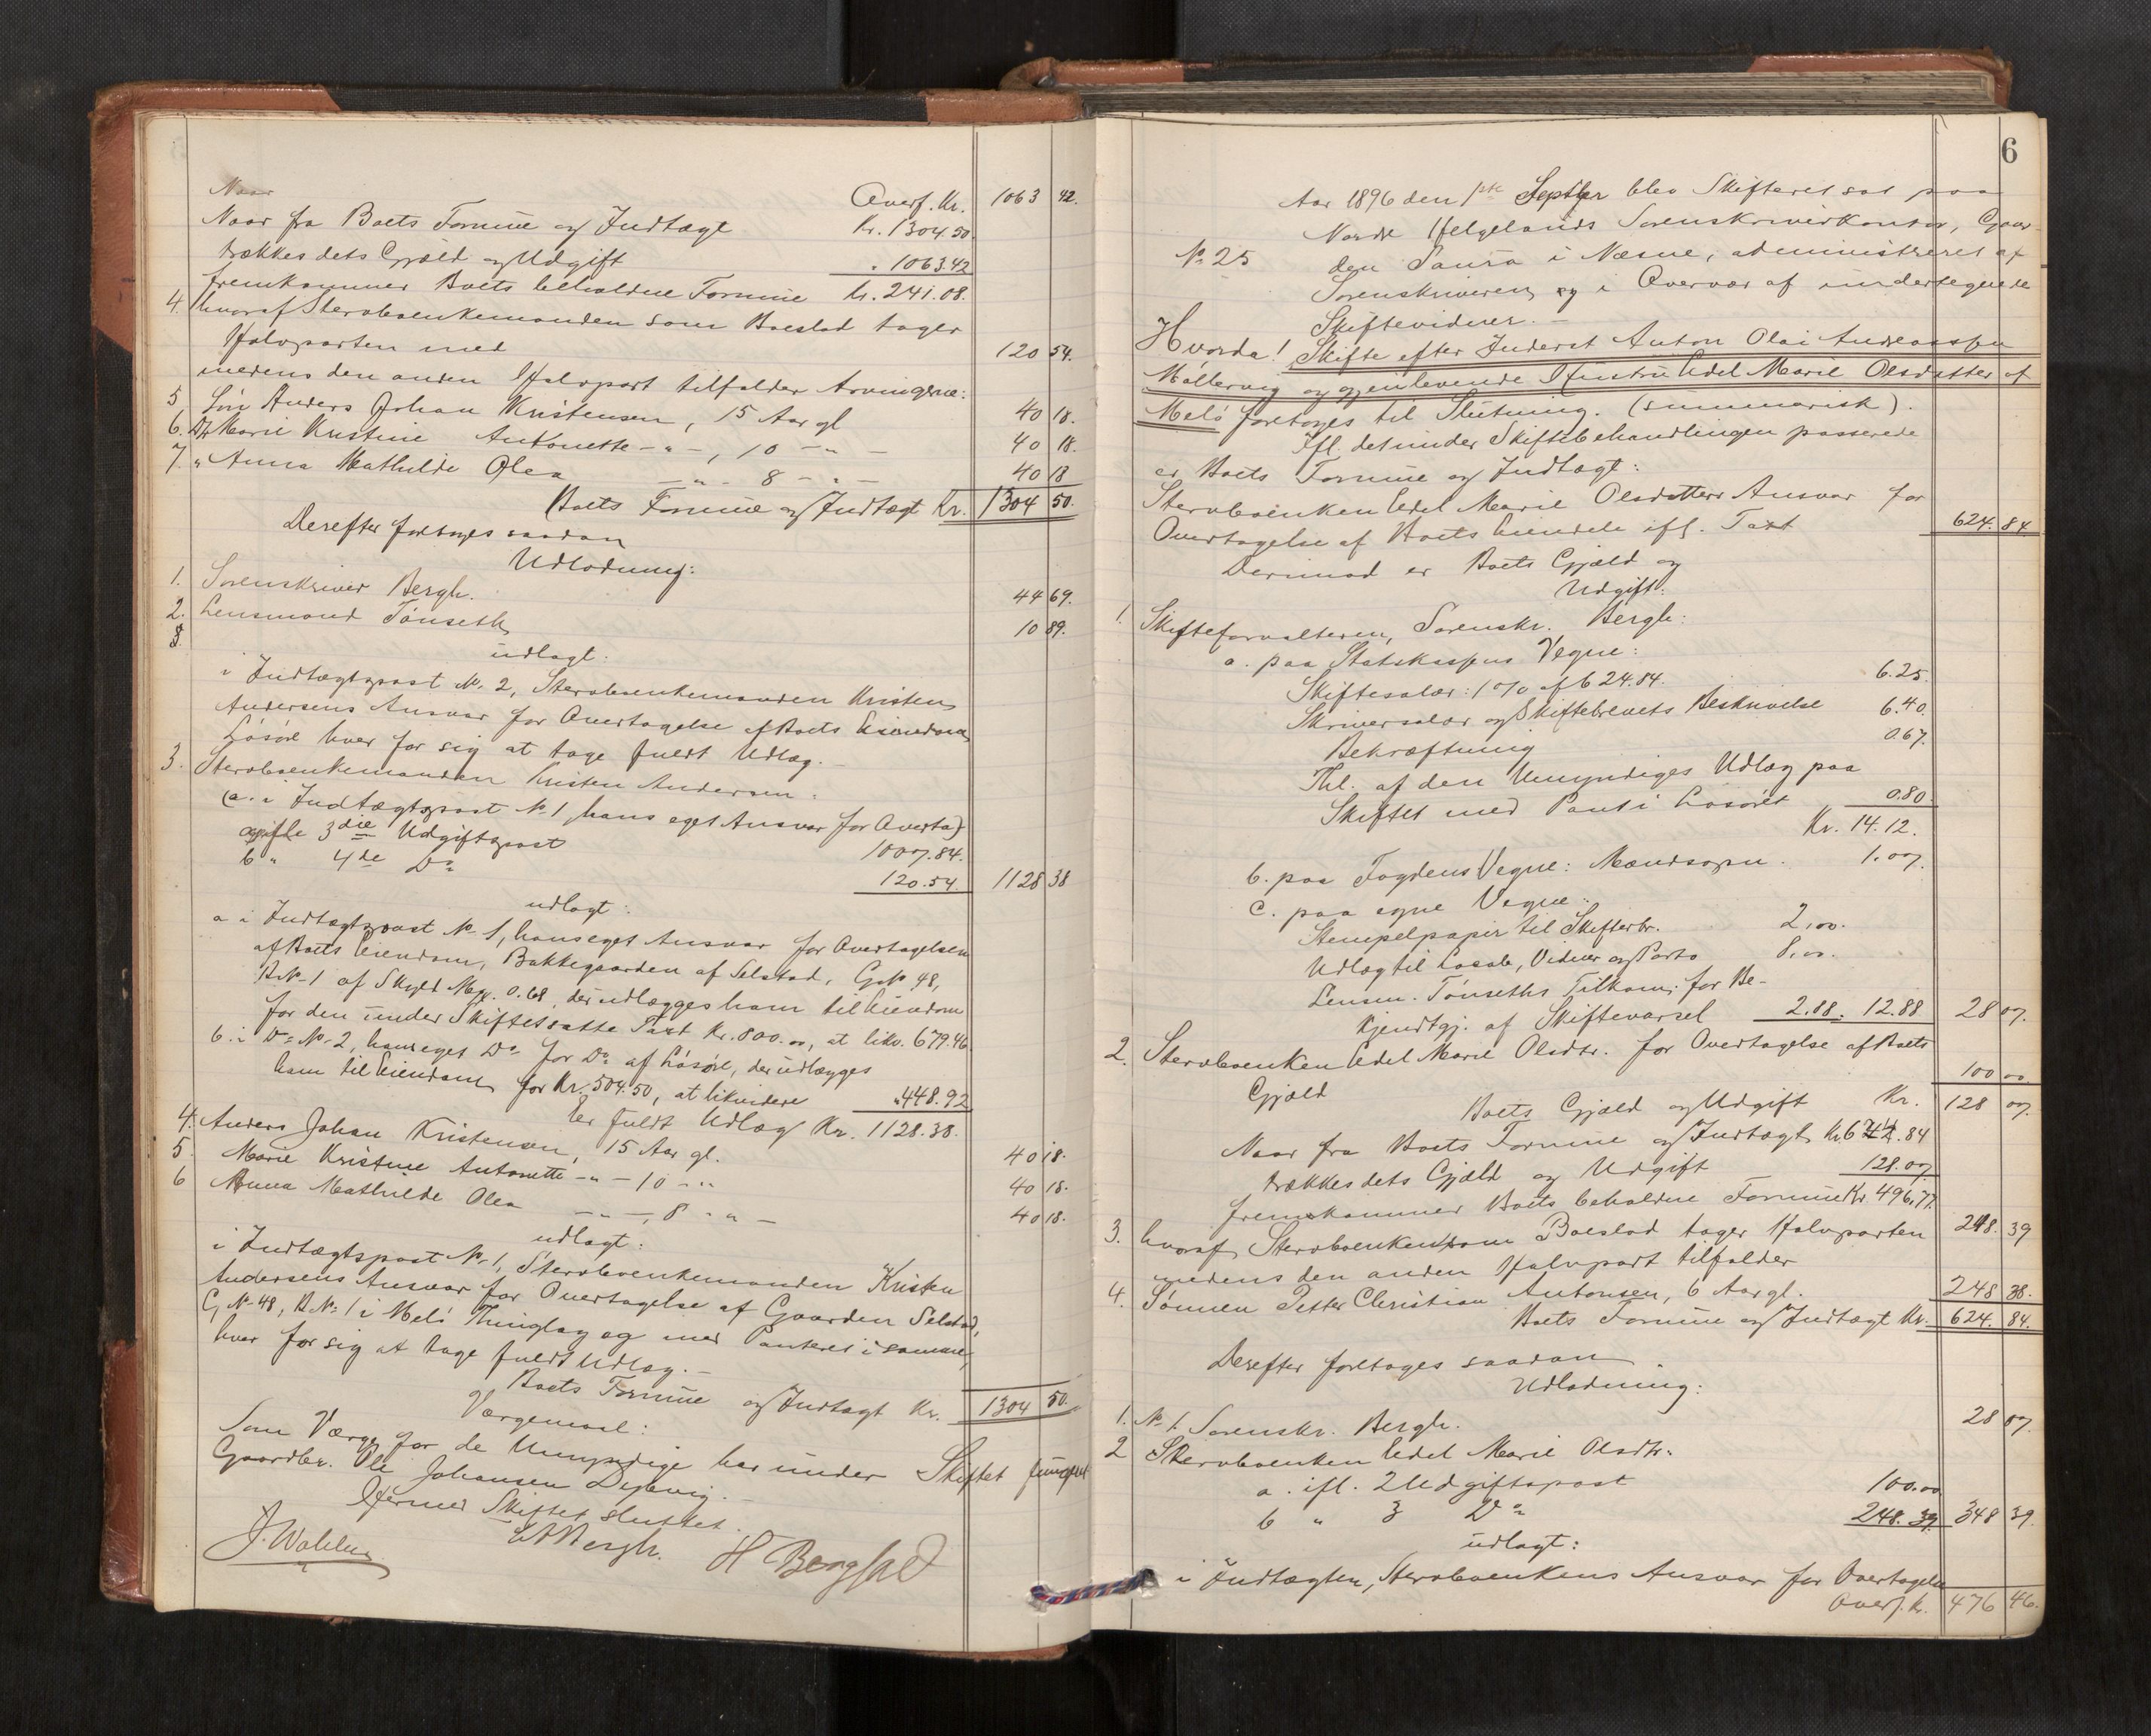 Naar
Overf. Kr. 1063 42.
Naar fra Boets Formue og Indtægt Kr. 1304.50.
trækkes dets Gjæld og Udgift " 1063.42
fremkommer Boets beholdne Formue Kr. 241.08.
4. hvoraf Stervboenkemanden som Boeslod tager
Halvparten med 120 54.
medens den anden Halvpart tilfalder Arvingerne:
5 Søn Anders Johan Kristensen, 15 Aar gl 40 18.
6. Dtr Marie Kristine Antonette - " -, 10 - " - 40 18.
7. " Anna Mathilde Olea - " - 8 - " - 40 18
Boets Formue og Indtægt Kr. 1304 50.
Derefter foretoges saadan
Udlodning:
1. Sorenskriver Bergh. 44 69.
2. Lensmand Tønseth 10 89.
3.
udlagt:
i Indtægtspost No 2, Stervboenkemanden Kristen
Andersens Ansvar for Overtagelse af Boets Eiendom
Løsøre hver for sig at tage fuldt Udlæg. -
3. Stervboenkemanden Kristen Andersen:
(a. i Indtægtspost No 1, hans eget Ansvar for Overta)
a ifle 3die Udgiftspost 1007.84.
b " 4de Do 120.54. 1128 38
udlagt:
a i Indtægtspost No 1, hans eget Ansvar for Overtagelsen
af Boets Eiendom, Bakkegaarden af Selstad, G.No 48,
B.No 1 af Skyld Mrk. 0.68, der udlægges ham til Eiendom
for den under Skiftet satte Taxt Kr. 800.00, at likv. 679.46.
b. i Do No 2, hans eget Do for Do af Løsøre, der udlægges
ham til Eiendom for Kr. 504.50, at likvidere " 448.92
Er fuldt Udlæg Kr. 1128.38.
4. Anders Johan Kristensen, 15 Aar gl. 40 18.
5. Marie Kristine Antonette - " - 10 - " 40 18.
6 Anna Mathilde Olea - " -, 8 - " - 40 18.
udlagt:
i Indtægtspost No 1, Stervboenkemanden Kristen
Andersens Ansvar for Overtagelse af Gaarden Selstad,
G.No 48, B.No 1 i Melø Thinglag og med Panteret i samme,
hver for sig at tage fuldt Udlæg. -
Boets Formue og Indtægt Kr. 1304 50.
Værgemaal:
Som Værge for de Umyndige har under Skiftet fungeret
Gaardbr. Ole Johansen Dybvig. -
Hermed Skiftet sluttet.
J. Wahlen Bergh. H Bergsad
6
Aar 1896 den 1ste Septbr blev Skifteret sat paa
Nordre Helgelands Sorenskriverkontor, Gaar-
No 25 den Saura i Næsne, administreret af
Sorenskriveren og i Overvær af undertegnede
Skiftevidner. -
Hvorda! Skifte efter Inderst Anton Olai Andreassen
Møllervig og gjenlevende Hustru Edel Marie Olsdatter af
Melø foretoges til Slutning. (summarisk).
Ifl. det under Skiftebehandlingen passerede
er Boets Formue og Indtægt:
Stervboenken Edel Marie Olsdatters Ansvar for
Overtagelse af Boets Eiendele ifl. Taxt 624. 84
Derimod er Boets Gjæld og
Udgift:
1. Skifteforvalteren, Sorenskr. Bergh:
a. paa Statskassens Vegne:
Skiftesalær: 1 % af 624.84. 6.25.
Skriversalær og Skiftebrevets Beskrivelse 6.40.
Bekræftning 0.67.
Thl. af den Umyndiges Udlæg paa
Skiftet med Pant i Løsøret 0.80
Kr. 14.12.
b. paa Fogdens Vegne: Mandsopn. 1.07.
c. paa egne Vegne:
Stempelpapir til Skiftebr. 2,00.
Udlæg til Locale, Vidner og Porto 8,00.
Lensm. Tønseths Tilkom. for Be-
kjendtgj. af Skiftevarsel 2.88. 12.88 28 07.
2. Stervboenken Edel Marie Olsdtr. for Overtagelse af Boets
Gjæld 100 00
Boets Gjæld og Udgift Kr. 128 07.
Naar fra Boets Formue og Indtægt Kr 624.84
trækkes dets Gjæld og Udgift 128.07
fremkommer Boets beholdne Formue Kr 496.77.
3. hvoraf Stervboenken som Boeslod tager Halvparten 248. 39
medens den anden Halvpart tilfalder
4. Sønnen Petter Christian Antonsen, 6 Aar gl. 248 38.
Boets Formue og Indtægt Kr. 624. 84.
Derefter foretoges saadan
Udlodning:
1. No 1. Sorenskr. Bergh. 28 07.
2 Stervboenken Edel Marie Olsdtr.
a. ifl. 2 Udgiftspost 100.00
b " 3 Do 248.39. 348 39.
udlagt:
i Indtægten, Stervboenkens Ansvar for Overtagelse
Overf. Kr. 476 46.